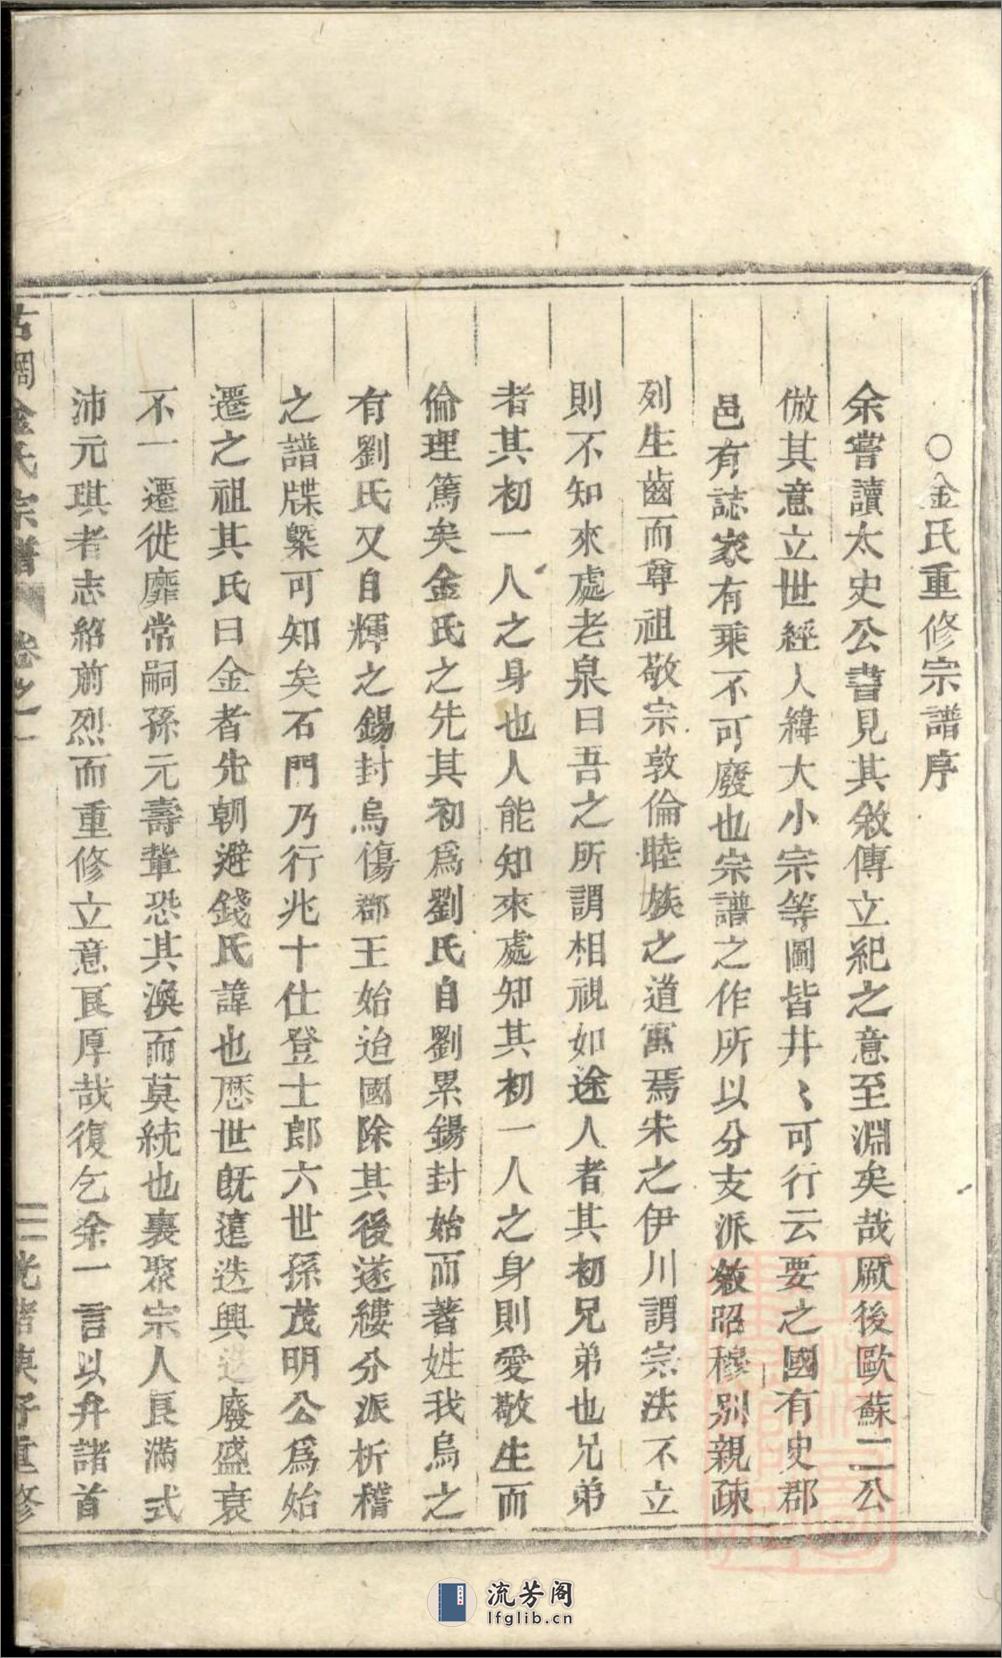 ○金氏重修宗譜序
余嘗讀太史公書見其敘傳立紀之意至淵矣哉厥後歐蘇二公
倣其意立世經人緯大小宗等圖皆井〻可行云要之國有史郡
邑有誌家有乘不可廢也宗譜之作所以分支派敘昭穆別親疎
列生齒而尊祖敬宗敦倫睦族之道寓焉宋之伊川謂宗法不立
則不知來處老泉曰吾之所謂相視如途人者其初兄弟也兄弟
者其初一人之身也人能知來處知其初一人之身則愛敬生而
倫理篤矣金氏之先其初爲劉氏自劉累錫封始而著姓我烏之
有劉氏又自輝之錫封烏傷郡王始迨國除其後遂縷分派析稽
之譜牒槩可知矣石門乃行兆十仕登士郎六世孫茂明公爲始
遷之祖其氏曰金者先朝避錢氏諱也歷世旣遠迭興迭廢盛衰
不一遷徙靡常嗣孫元壽輩恐其渙而莫統也裒聚宗人良滿式
沛元琪者志紹前烈而重修立意良厚哉復乞余一言以弁諸首
古稠金氏宗譜 卷之一 二 光緒庚子重修
流芳阁
lfglib.cn